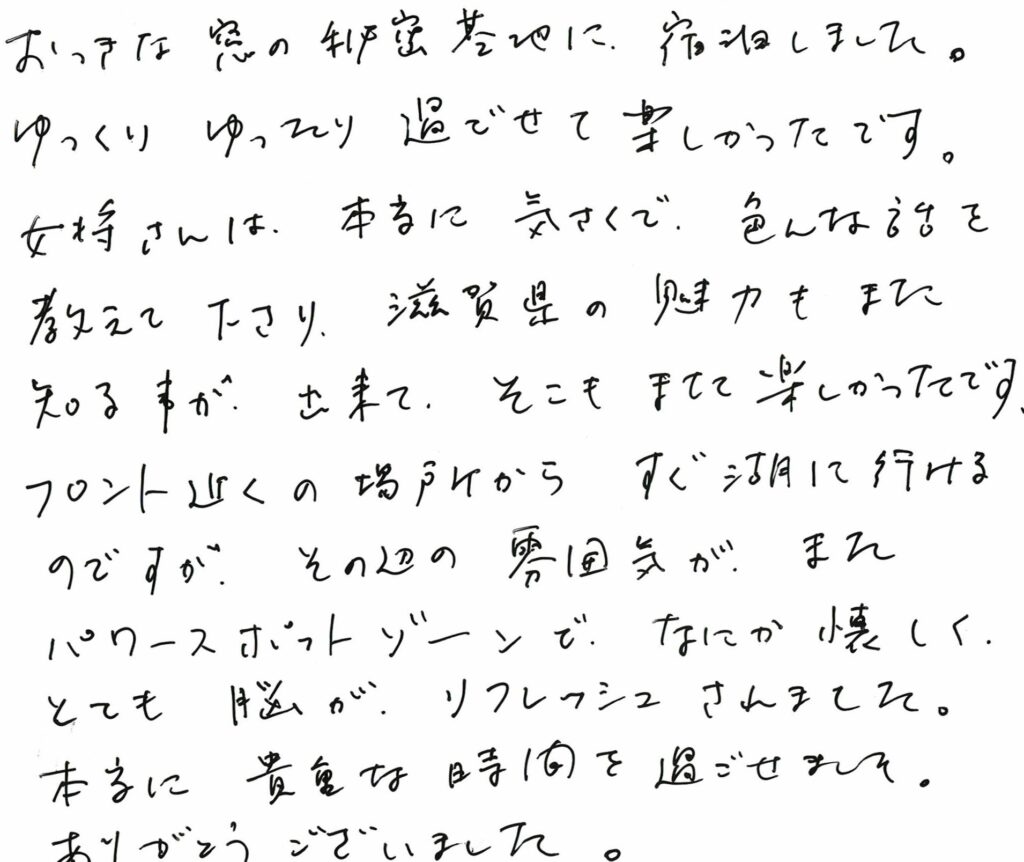 おっきな窓の秘密基地に、宿泊しました。
ゆっくり ゆったり 過ごせて楽しかったです。
女将さんは、本当に 気さくで、色んな話を
教えて下さり、滋賀県の魅力もまた
知る事が、出来て、そこもまた楽しかったです、
フロント近くの場所から すぐ湖に行ける
のですが、その辺の雰囲気が、また
パワースポットゾーンで、なにか懐しく、
とても 脳が、リフレッシュされました。
本当に 貴重な時間を過ごせました。
ありがとうございました。